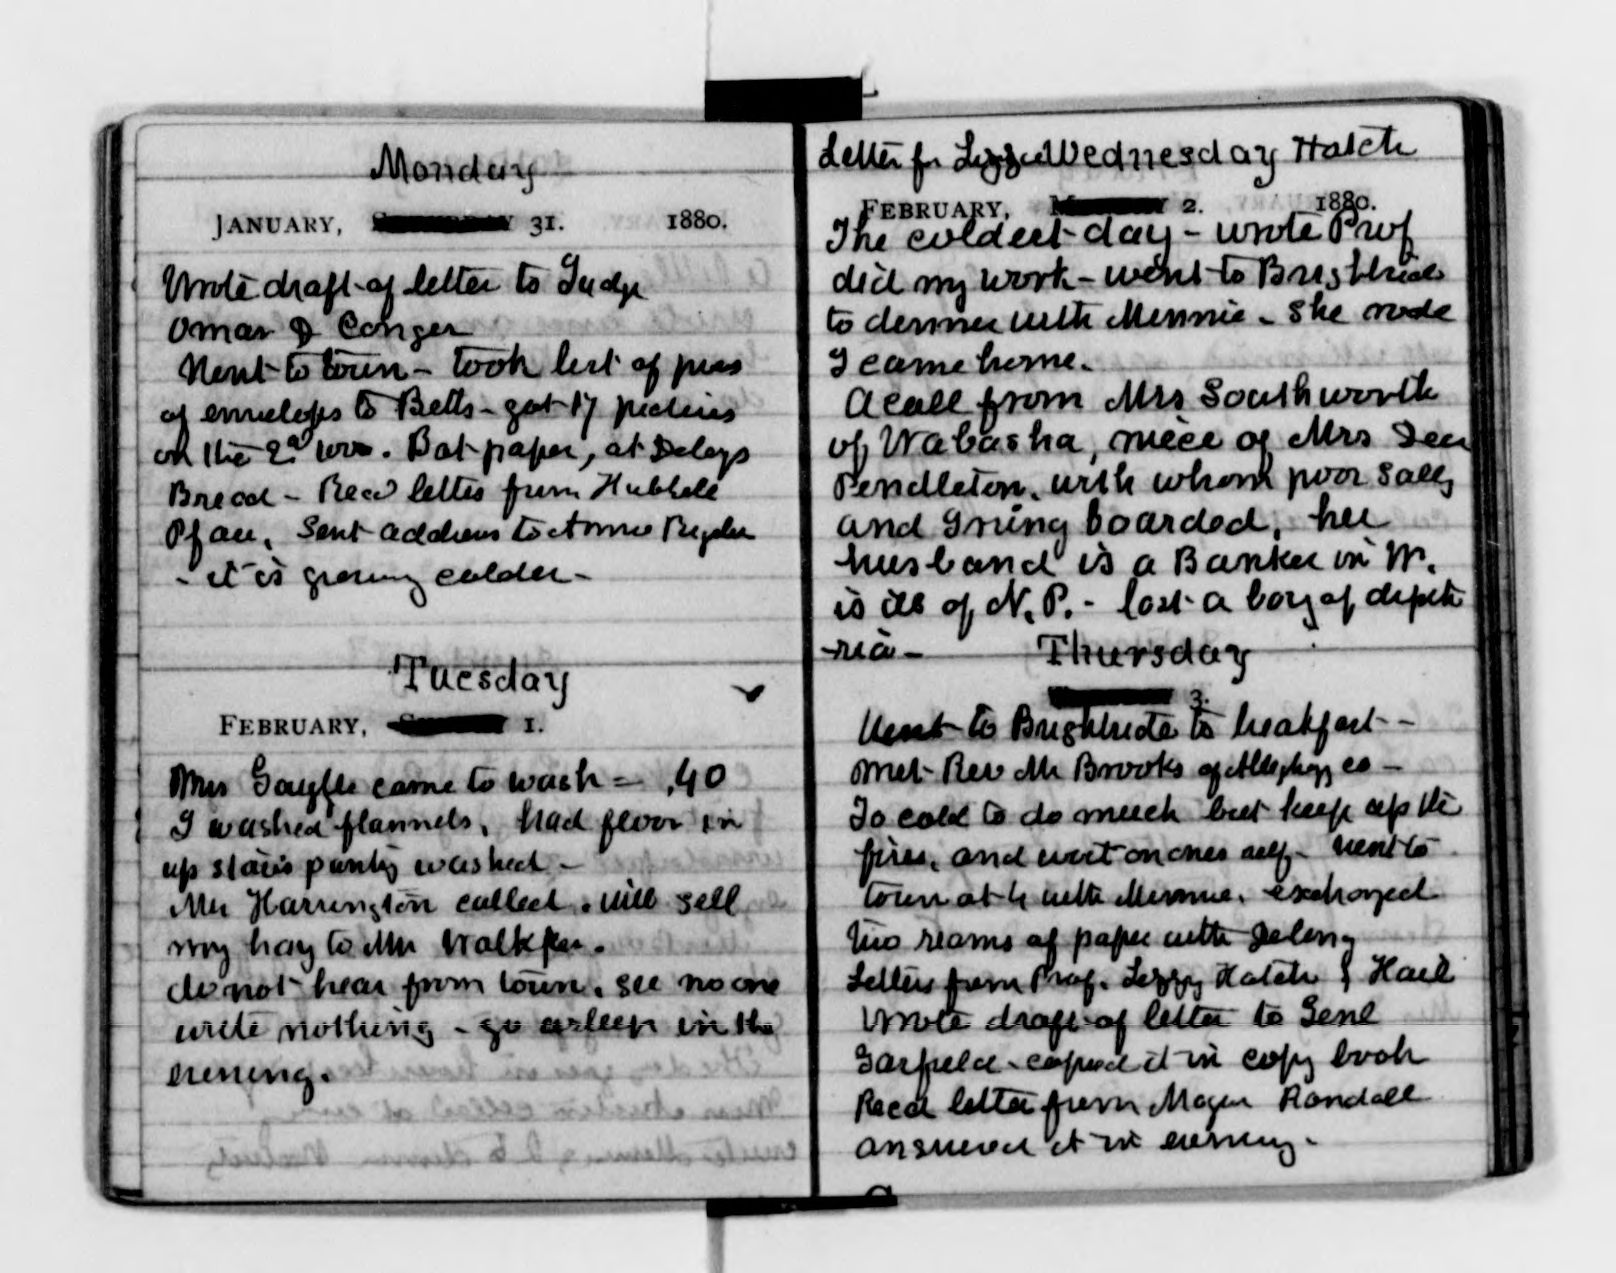 Monday
JANUARY, 31. 1880.
Wrote draft of letter to Judge
Omar D Conger
Went to town - took list of
of envelops to Betts - got 17
on the 2d . Bot paper, at Delays
Bread - Recd letter from Hubbell
Pfau, Sent address to
- it is growing colder -
Tuesday
FEBRUARY, 1.
Mrs came to wash = .40
I washed flannels, had floor in
up stairs pantry washed -
Mr Harrington called. will sell
my hay to Mr
do not hear from town. see no one
write nothing - go asleep in the
evening.
Letter fr Lizzie Wednesday Hatch
FEBRUARY, 2. 1880.
The coldest day - wrote Prof
did my work - went to Brightside
to dinner with Minnie - She rode
I came home.
A call from Mrs Southworth
of Wabasha, niece of Mrs Dea
Pendleton, with whom poor Sally
and Irving boarded, her
husband is a Banker in W.
is ill of N. P. - lost a boy of dipth
-ria -
Thursday
3.
Went to Brightside to breakfast -
met Rev Mr Brooks of co -
To cold to do much but keep up the
fires, and wait on ones self - went to
town at 4 with Minnie. exchanged
two reams of paper with
Letters from Prof. Lizzy Hatch & Hail
Wrote draft of letter to Genl
Garfield - copied it in copy book
Recd letter from Mayer Randall
answered it in evening -